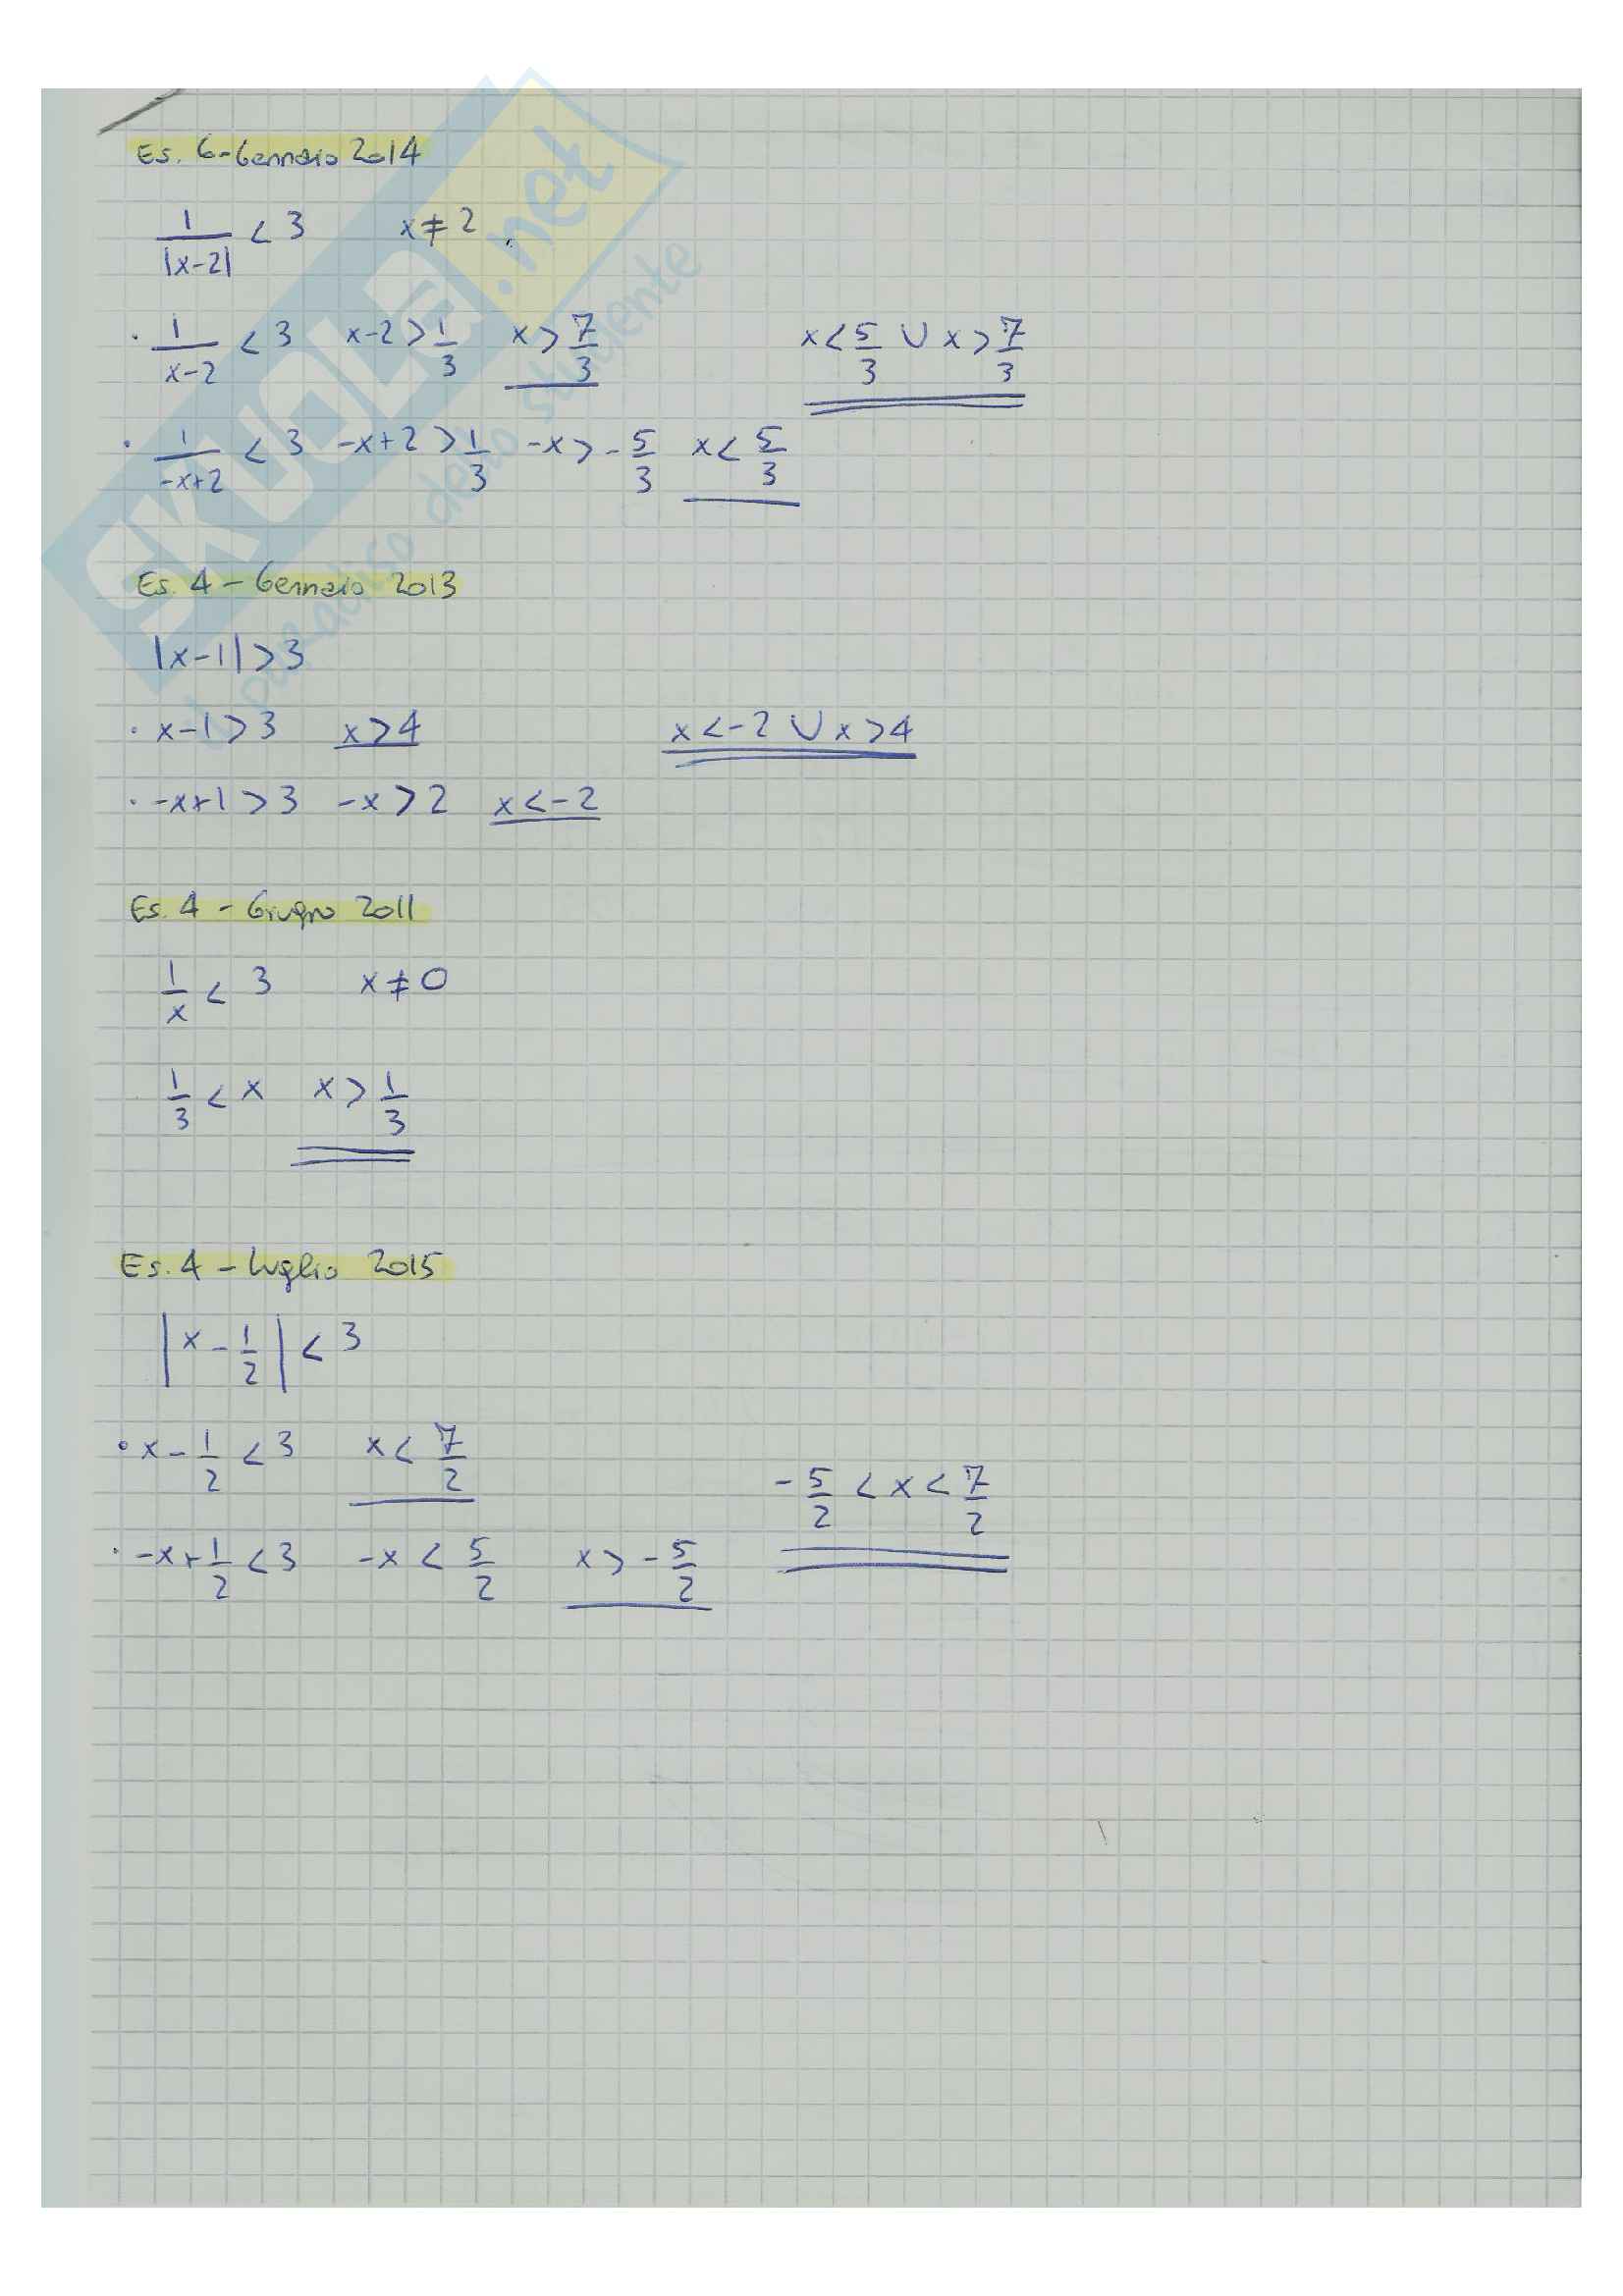 Es. 6-Gennaio 2014
1/|x-2| < 3 x≠2
· 1/(x-2) < 3 x-2 > 1/3 x > 7/3 x < 5/3 ∪ x > 7/3
· 1/(-x+2) < 3 -x+2 > 1/3 -x > -5/3 x < 5/3
Es. 4 - Gennaio 2013
|x-1| > 3
· x-1 > 3 x > 4 x < -2 ∪ x > 4
· -x+1 > 3 -x > 2 x < -2
Es. 4 - Giugno 2011
1/x < 3 x≠0
1/3 < x x > 1/3
Es. 4 - Luglio 2015
|x - 1/2| < 3
· x - 1/2 < 3 x < 7/2 -5/2 < x < 7/2
· -x + 1/2 < 3 -x < 5/2 x > -5/2
SKUOLA.net
il paradiso dello studente